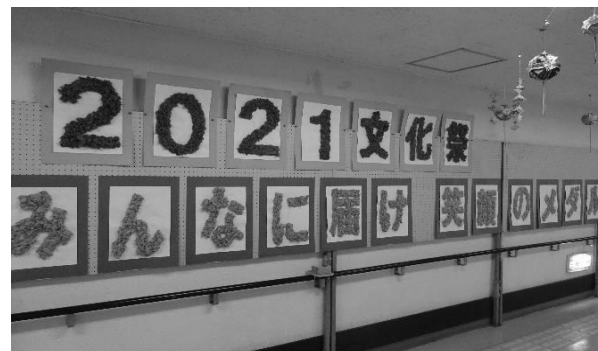 2021文化祭
みんなに届け笑顔のメダル